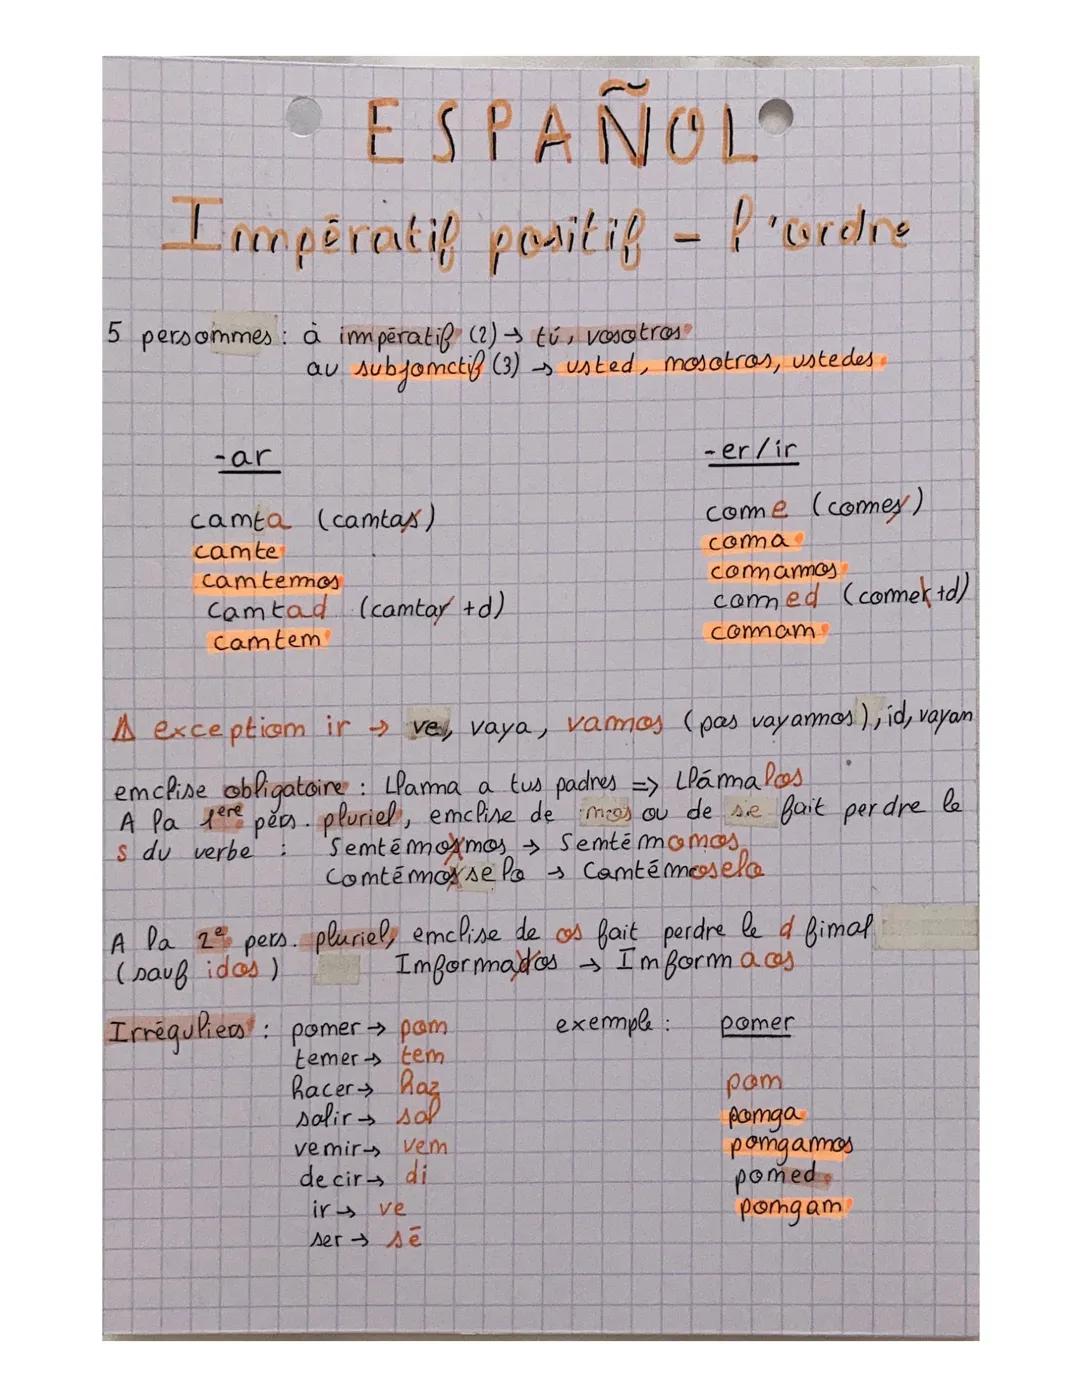 ESPAÑOL
Impératif positif - l'ordre
5 personnes : à impératif (2) → tú, vosotros
au subjonctif (3) → usted, nosotros, ustedes.
-ar
canta (cantas)
cante
cantemos
cantad (cantar + d)
canten
-er/ir
come (comes)
coma
comamos
comed (comer + d)
coman
⚠ exception ir → ve, vaya, vamos (pas vayamos), id, vayan
enclise obligatoire : Llama a tus padres => Llámalos
A la 1ère pers. pluriel, enclise de nos ou de se fait perdre le
s du verbe : Sentémosnos → Sentémonos
Contémosselo → Cantémoselo
A la 2e pers. pluriel, enclise de os fait perdre le d final
(sauf idos) Informados → Informaos
Irréguliers : poner → pon
tener → ten
hacer → haz
salir → sal
venir → ven
decir → di
ir → ve
ser → sé
exemple : poner
pon
ponga
pongamos
poned
pongan